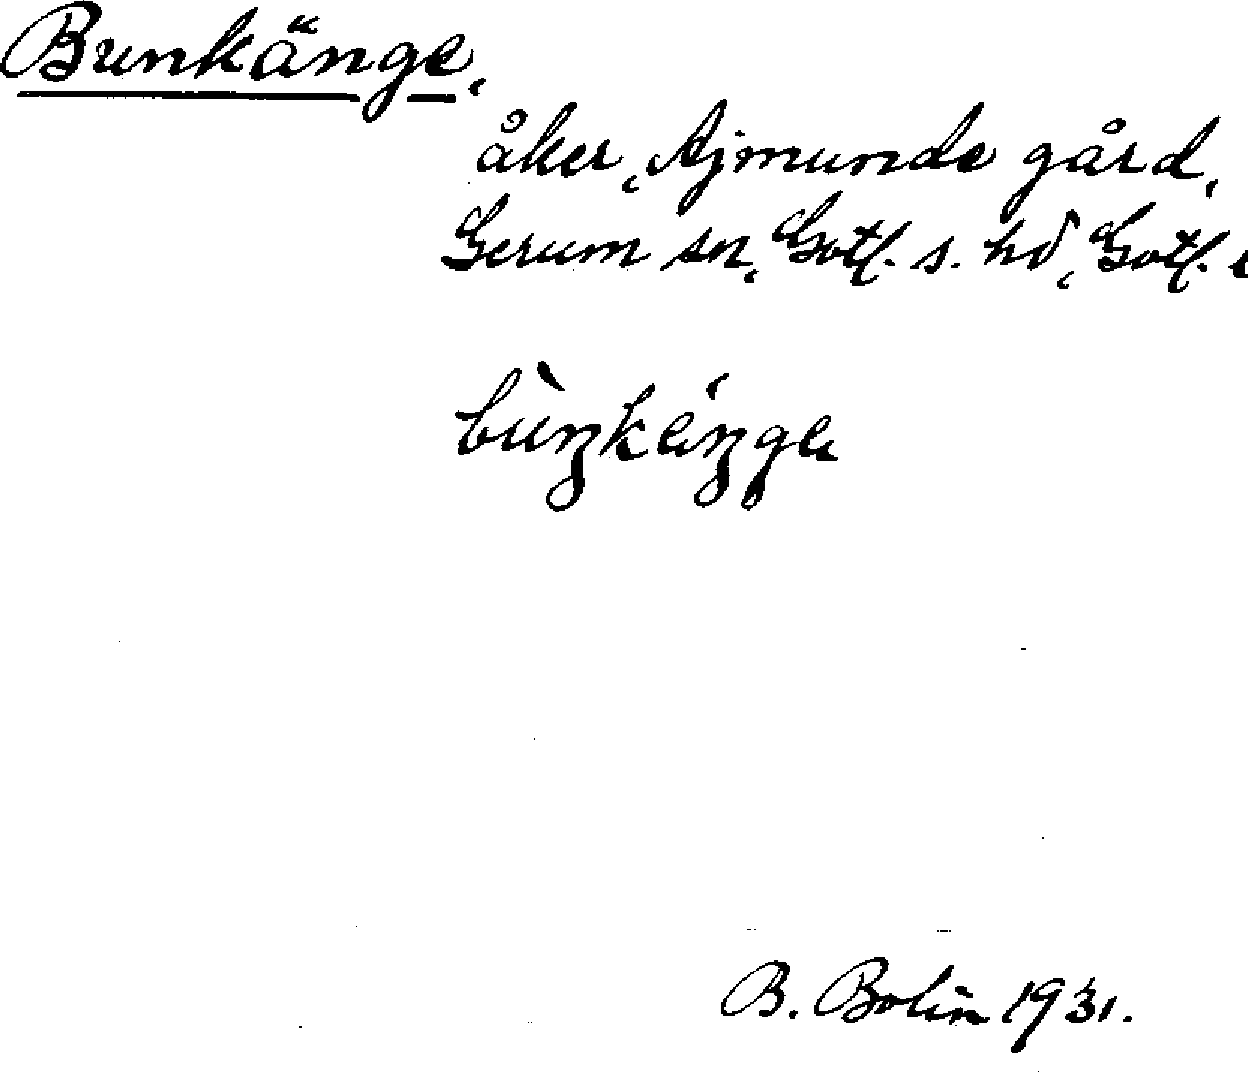 Bunkänge,
åker, Ajmunde gård,
Gerum sn, Gotl. s. hd, Gotl.
bùŋkáŋga
B. Bolin 1931.